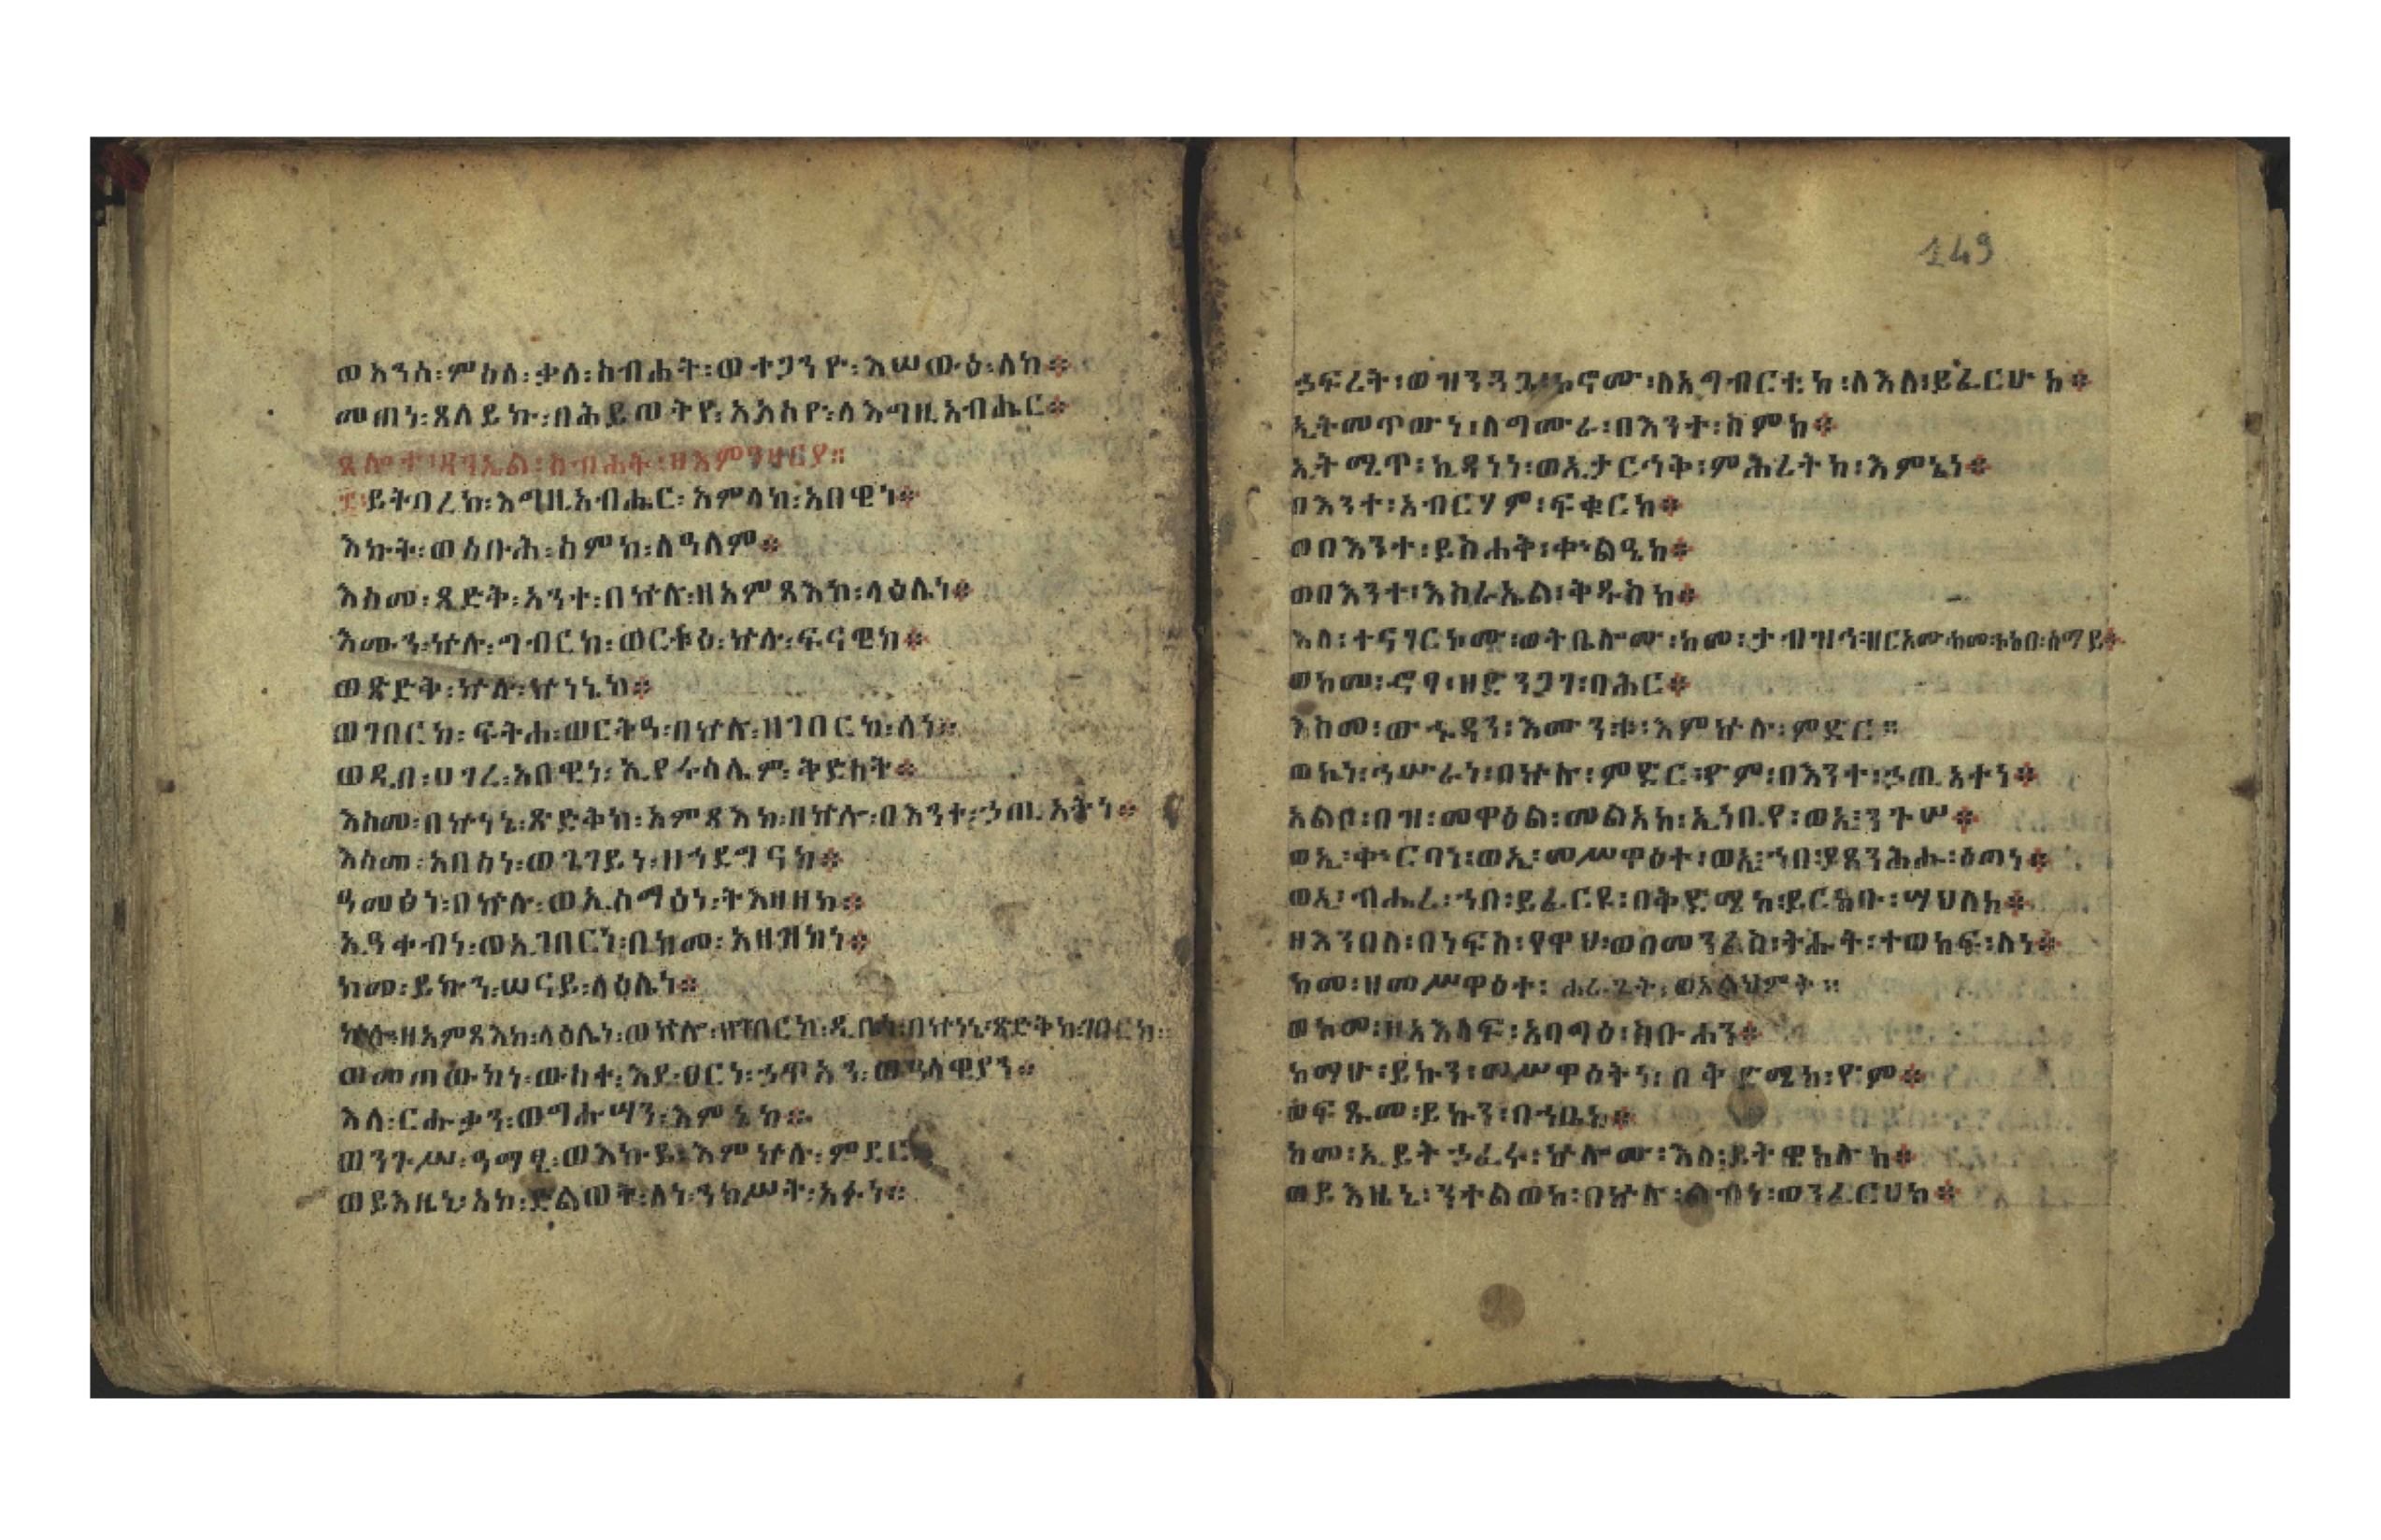 ወአንሰ፡ምስለ፡ቃለ፡ስብሐት፡ወተጋንዮ፡እሠውዕ፡ለከ።
መጠነ፡ጸለይኩ፡በሕይወትየ፡አአስዮ፡ለእግዚአብሔር።
ጸሎተ፡ዳንኤል፡ስብሐት፡ዘእምዓዛርያ።
ይትባረክ፡እግዚአብሔር፡አምላከ፡አበዊነ።
እኩት፡ወስቡሕ፡ስምከ፡ለዓለም።
እስመ፡ጻድቅ፡አንተ፡በኵሉ፡ዘአምጻእከ፡ላዕሌነ።
እሙን፡ኵሉ፡ግብርከ፡ወርቱዕ፡ኵሉ፡ፍናዊከ።
ወጽድቅ፡ኵሉ፡ኵነኔከ።
ወገበርከ፡ፍትሐ፡ወርትዓ፡በኵሉ፡ዘገበርከ፡ለነ።
ወዲበ፡ሀገረ፡አበዊነ፡ኢየሩሳሌም፡ቅድስት።
እስመ፡በኵነኔ፡ጽድቅከ፡አምጻእከ፡ዘኵሎ፡በእንተ፡ኃጢአትነ።
እስመ፡አበስነ፡ወጌገይነ፡ዘኀደግናከ።
ዓመፅነ፡በኵሉ፡ወኢሰማዕነ፡ትእዛዘከ።
ኢዓቀብነ፡ወኢገበርነ፡በከመ፡አዘዝከነ።
ከመ፡ይኩን፡ሠናይ፡ላዕሌነ።
ኵሎ፡ዘአምጻእከ፡ላዕሌነ፡ወኵሎ፡ዘገበርከ፡ዲቤነ፡በኵነኔ፡ጽድቅከ፡ገበርከ።
ወመጠውከነ፡ውስተ፡እደ፡ፀርነ፡ኃጥአን፡ወዓላዊያን።
እለ፡ርሑቃን፡ወግሑሣን፡እምኔከ።
ወንጉሥ፡ዓማፂ፡ወእኩይ፡እምኵሉ፡ምድር
ወይእዜኒ፡አኮ፡ድልወት፡ለነ፡ንክሥት፡አፉነ።
149
ኃፍረት፡ወዝንጓጔ፡ኮኖሙ፡ለአግብርቲከ፡ለእለ፡ይፈርሁከ።
ኢትመጥወነ፡ለግሙራ፡በእንተ፡ስምከ።
ኢትሚጥ፡ኪዳነነ፡ወኢታርኅቅ፡ምሕረትከ፡እምኔነ።
በእንተ፡አብርሃም፡ፍቁርከ።
ወበእንተ፡ይስሐቅ፡ቍልዔከ።
ወበእንተ፡እስራኤል፡ቅዱስከ።
እለ፡ተናገርኮሙ፡ወትቤሎሙ፡ከመ፡ታብዝኅ፡ዘርኦሙ፡ከመ፡ኮከበ፡ሰማይ።
ወከመ፡ኖፃ፡ዘድንጋገ፡በሕር።
እስመ፡ውኁዳን፡እሙንቱ፡እምኵሉ፡ምድር።
ወኪነ፡ኅሡራነ፡በኵሉ፡ምድር፡ዮም፡በእንተ፡ኃጢአተነ።
አልቦ፡በዝ፡መዋዕል፡መልአከ፡ኢነቢየ፡ወኢ፡ንጉሠ።
ወኢ፡ቍርባነ፡ወኢ፡መሥዋዕተ፡ወኢ፡ኀበ፡ያጸንሕሑ፡ዕጣነ።
ወኢ፡ብሔረ፡ኀበ፡ይፈርዩ፡በቅድሜከ፡ይርከቡ፡ሣህለከ።
ዘእንበለ፡በነፍስ፡የዋህ፡ወበመንፈስ፡ትሑት፡ተወከፍ፡ለነ።
ከመ፡ዘመሥዋዕተ፡ሐራጊት፡ወአልህምት።
ወከመ፡ዘአእላፍ፡አባግዕ፡ስቡሐን።
ከማሁ፡ይኩን፡መሥዋዕትነ፡በቅድሜከ፡ዮም።
ወፍጹመ፡ይኩን፡በኀቤከ።
ከመ፡ኢይትኃፈሩ፡ኵሎሙ፡እለ፡ይትዌከሉከ።
ወይእዜኒ፡ንተልወከ፡በኵሉ፡ልብነ፡ወንፈርሀከ።